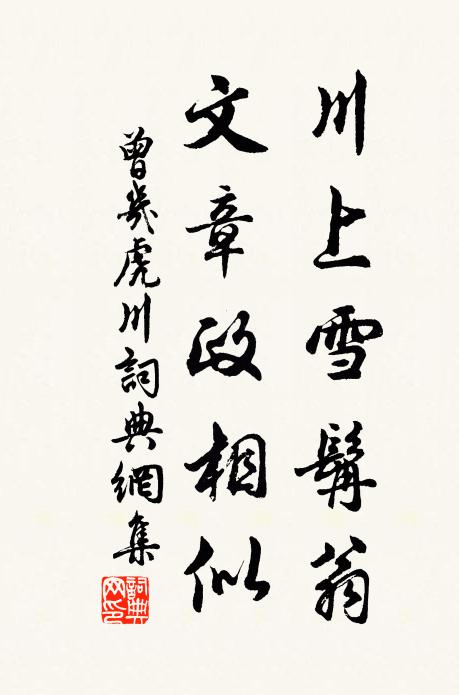 川上雪鬢翁
文章政相似
曾幾虎川詞典網集
詞典
网印